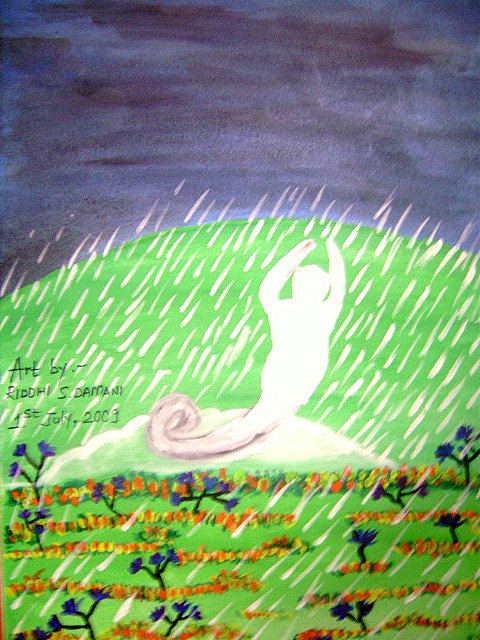 Art by :-
RIDDHI S. DAMANI
1st July, 2009